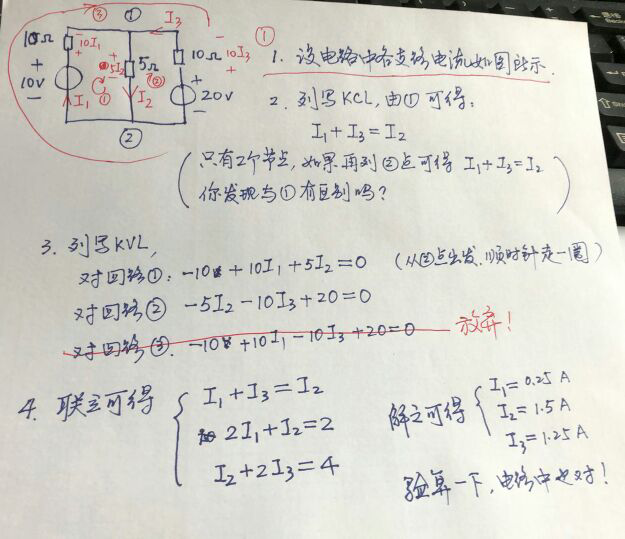 ③ ① I₃
10Ω 10I₁ 5I₂ 5Ω 10Ω 10I₃
+ 10V - I₁ ① I₂ ② + 20V -
②
①
1. 设电路中各支路电流如图所示.
2. 列写KCL, 由①可得:
I₁+I₃=I₂
(只有2个节点, 如果再列②点可得 I₁+I₃=I₂
你发现与①有区别吗?)
3. 列写KVL,
对回路①: -10+10I₁+5I₂=0 (从②点出发, 顺时针走一圈)
对回路② -5I₂-10I₃+20=0
对回路③. -10+10I₁-10I₃+20=0 放弃!
4. 联立可得 { I₁+I₃=I₂
2I₁+I₂=2
I₂+2I₃=4
解之可得 { I₁=0.25A
I₂=1.5A
I₃=1.25A
验算一下, 电路中也对!